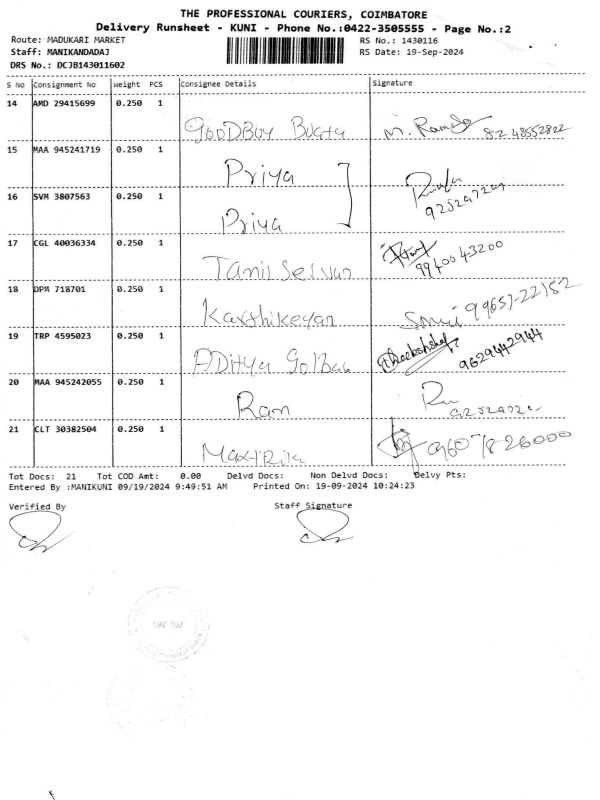 THE PROFESSIONAL COURIERS, COIMBATORE
Delivery Runsheet - KUNI - Phone No.:0422-3505555 - Page No.:2
Route: MADUKARI MARKET RS No.: 1430116
Staff: MANIKANDADAJ RS Date: 19-Sep-2024
DRS No.: DCJB143011602
S No Consignment No Weight PCS Consignee Details Signature
14 AMD 29415699 0.250 1
GOODBOY M. 82 48552822
15 MAA 945241719 0.250 1
Priya
16 SVM 3807563 0.250 1
Priya
17 CGL 40036334 0.250 1
Tamil Selvan 9940043200
18 DPM 718701 0.250 1
Karthikeyan 99657-22152
19 TRP 4595023 0.250 1
ADitya 9629442944
20 MAA 945242055 0.250 1
Ram
21 CLT 30382504 0.250 1
9607826000
Tot Docs: 21 Tot COD Amt: 0.00 Delvd Docs: Non Delvd Docs: Delvy Pts:
Entered By :MANIKUNI 09/19/2024 9:49:51 AM Printed On: 19-09-2024 10:24:23
Verified By Staff Signature